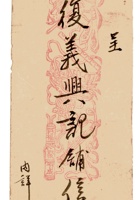 呈
復義興記舖信
內詳